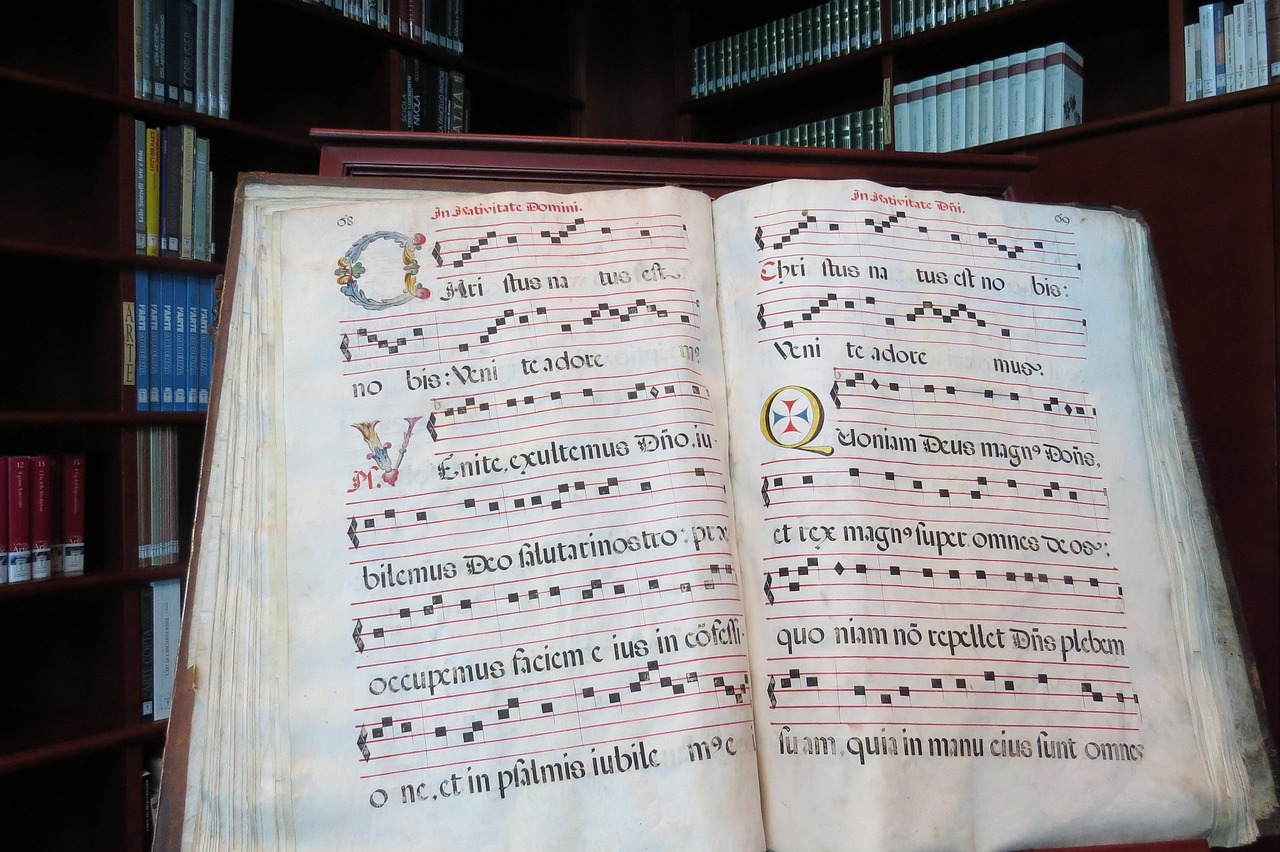 68
In Nativitate Domini.
Chri stus na tus est
no bis: Veni te adore m9
Ps. Venite, exultemus Dño, iu-
bilemus Deo salutarinostro: præ
occupemus faciem e ius in cõfessi-
o ne, et in psalmis iubile m9 e
In Nativitate Dñi.
69
Chri stus na tus est no bis:
Veni te adore mus.
Quoniam Deus magn9 Dons,
et rex magn9 super omnes deos:
quo niam nõ repellet Dñs plebem
suam, quia in manu eius sunt omnes
ARTE
L'ARTE
L'ARTE
L'ARTE
L'ARTE
L'ARTE